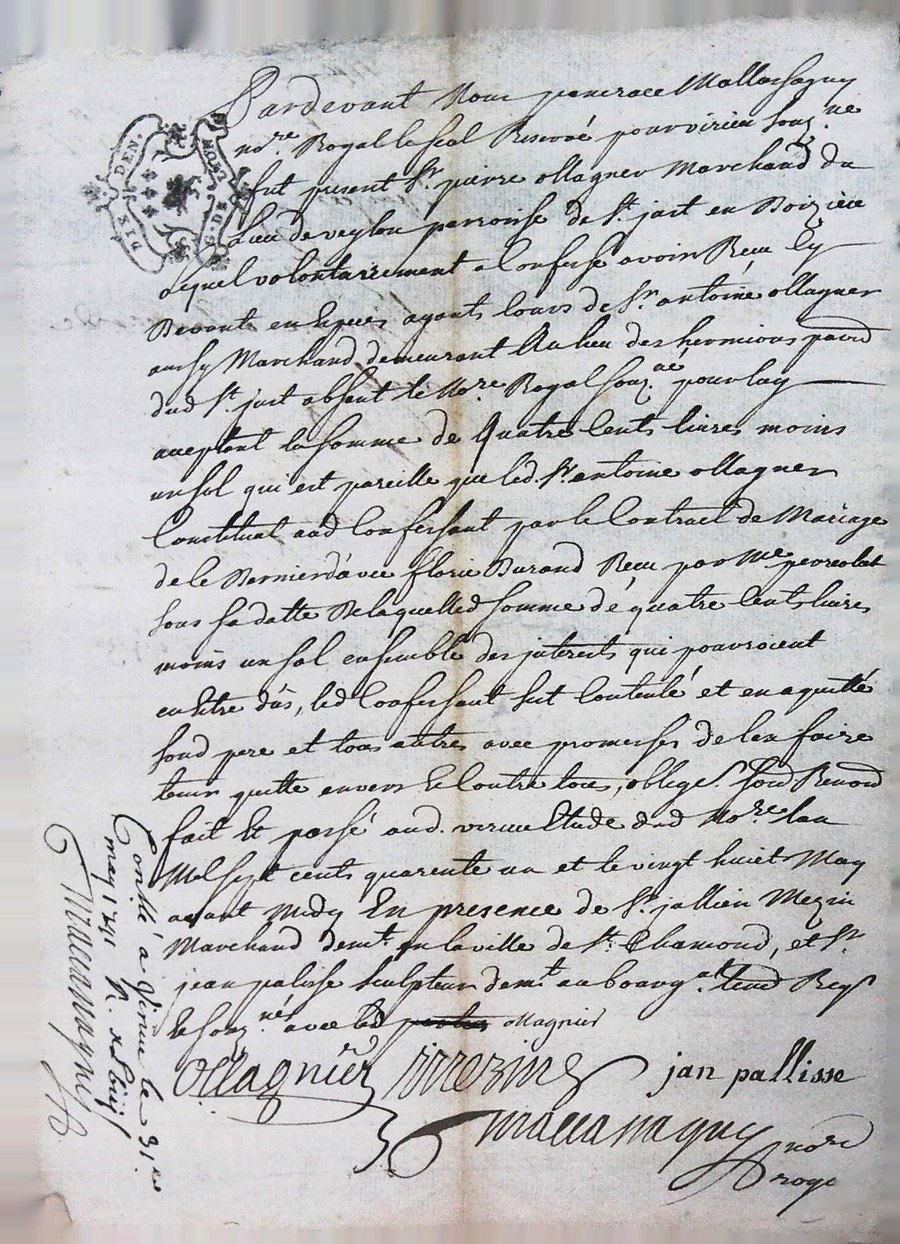 DIX DEN.
G. DE MONT
Pardevant Nous pancrace Mallassagny
no.re Royal le seal Reservé pour virieu Souz.né
fut present S.r pierre ollagner Marchand du
Lieu de veylou parroisse de S.t just en Doizieu
Lequel volontairement a Confessé avoir Receu Cy
Devant en Especes ayants Cours de S.r antoine ollagner
aussy Marchand demeurant Au lieu des hermious parr.
dud S.t just absent le No.re Royal souz.né pour luy
acceptant la somme de Quatre Cents livres moins
un sol qui est pareille que led S.r antoine ollagner
Constituat aud Confessant par le Contract de Mariage
de le Dernier d'avec florie Durand Receu par M.e
sous sa datte De laquelle d somme de quatre Cents livres
moins un sol ensemble des jnterests qui pouvroient
en Estre dûs, led Confessant s'est Contenté et en a quitté
sond pere et tous autres avec promesses de l'en faire
tenir quitte envers Et Contre tous, oblige.s soud Renond
fait Et passé aud. virieu Etude dud No.re l'an
Mil sept cents quarente un et le vingt huict May
avant Midy En presence de S.r jullien Mezin
Marchand dem.t en la ville de S.t Chamond, et S.r
jean palisse Sculpteur dem.t au bourg
Et souz.nés avec led ollagnier
ollagnier Mezin jan pallisse
no.re
royal
Con.llé à Virieu le 31.e
may 1741 R.